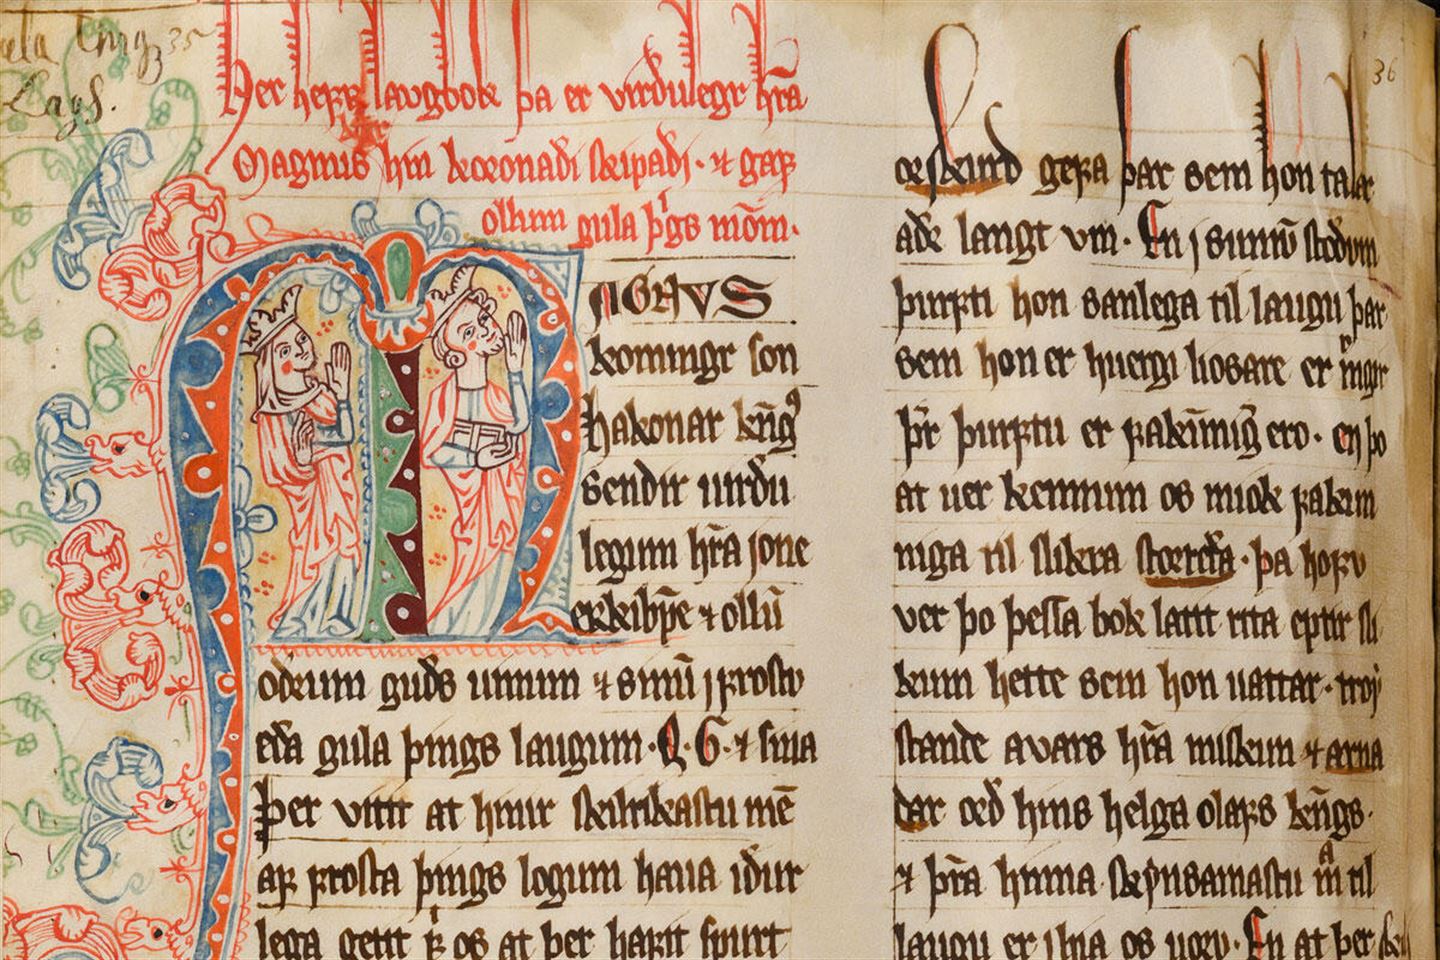 35
Lags.
Her hefr laugbok þa er virðulegr hr̄a
Magnus hin koronaði skipaði · ⁊ gaf
ollum gula þi̍gs mōm ·
AGNVS
konungr son
hakonar kn̄gs
sendir uirðu
legum hr̄a jone
erkibpe ⁊ ollū
oðrum guðs uinum ⁊ sinū j frosto
eða gula þings laugum · Q · G · ⁊ sina
Þer vitit at hinir skilrikastu mē
af frosta þings logum haua iður
lega getit ṡ os at þer hafit spurt
36
or skurd gera þar sem hon talar
aðr langt vm · En j sumū stoðum
þurfti hon sanlega til laugu þar
sem hon er huergi liosare er mi̍gir
þr̄ þurftu er fakunniḡ ero · en þo
at uer kennum os miok fakun
niga til slikra storræða · þa hofu
ver þo þessa bok latit rita eptir sli
kum hette sem hon uattar · troy
stande a vars hr̄a miskun ⁊ arna
dar orð hins helga olafs kn̄gs ·
⁊ þr̄a hinna skynsamastu mͣ til
laugu er j hia os uoru · En at þer